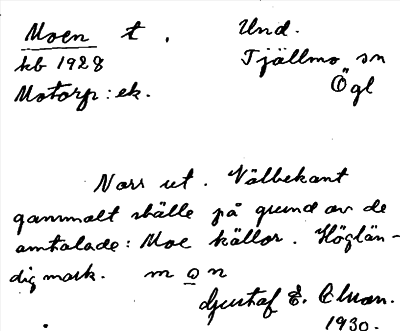 Moen t. Und.
kb 1928 Tjällmo sn
Motorp: ek. Ögl
Norr ut. Välbekant
gammalt ställe på grund av de
omtalade: Moe källor. Höglän-
dig mark. m o n
Gustaf E.
1930.